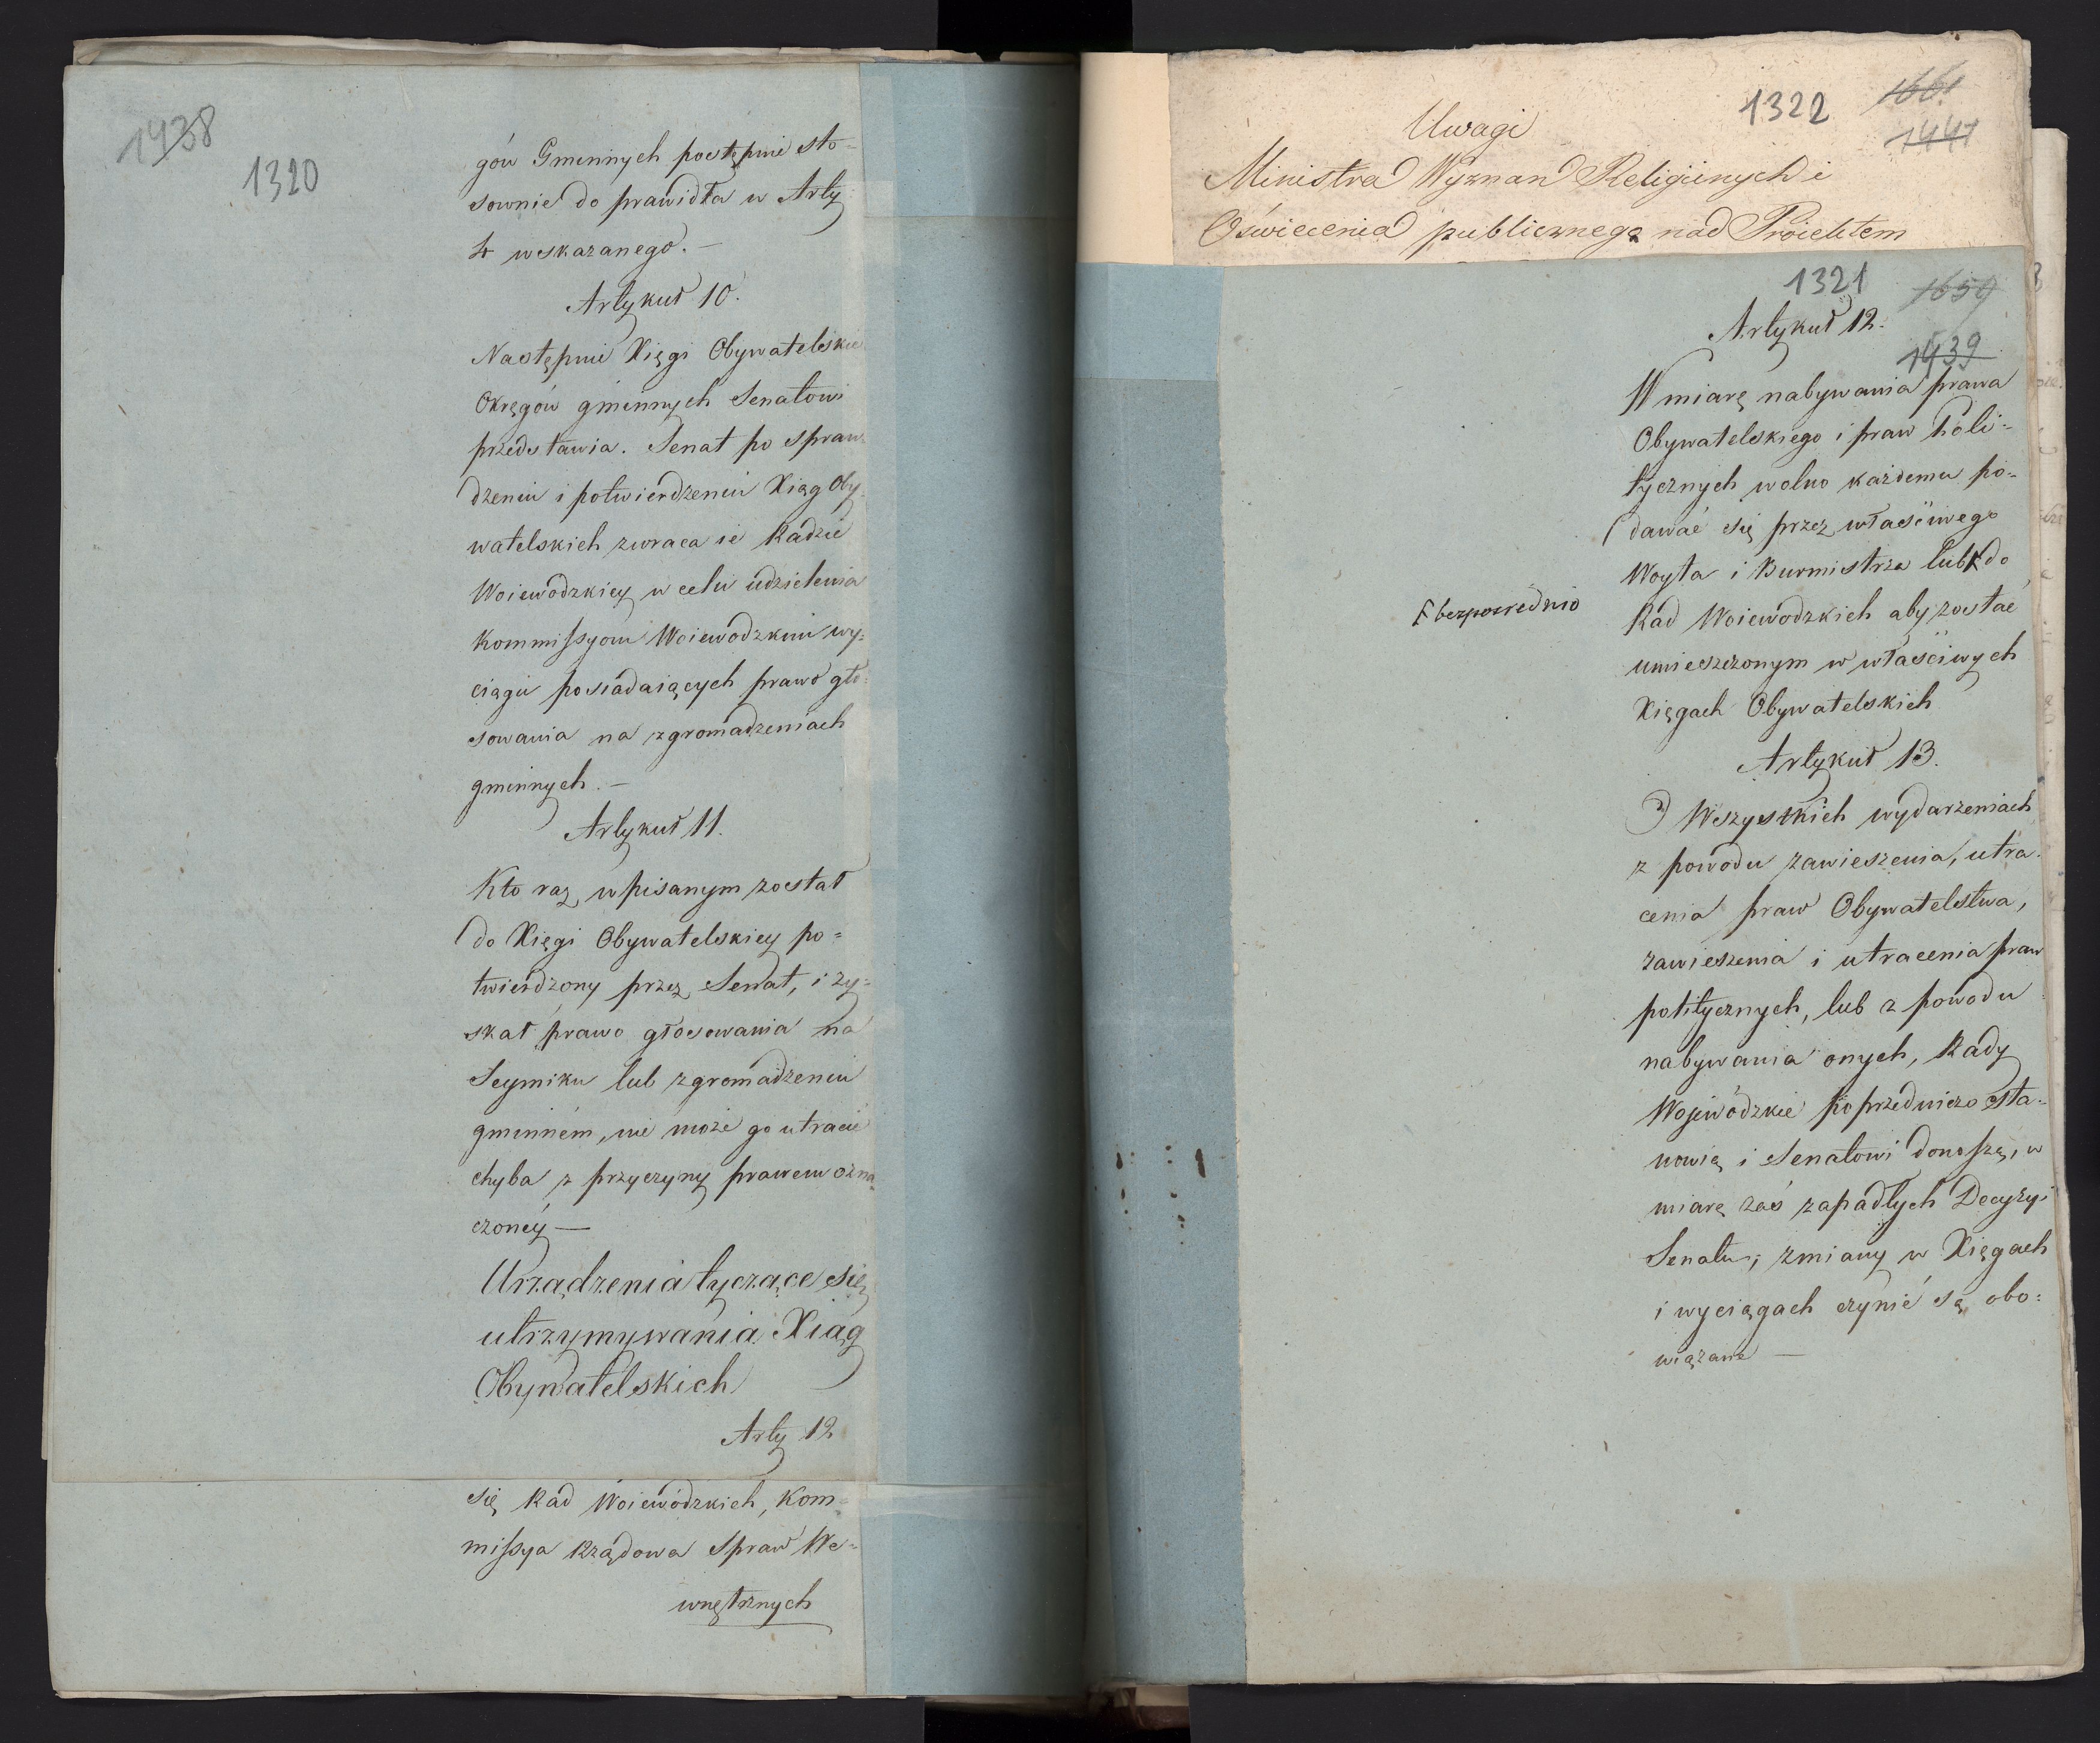 1438
1320
gów Gminnych postępnie sto-
sownie do prawidła w Arty
4 wskazanego. —
Artykuł 10.
Następnie Xięgi Obywatelskie
Okręgów gminnych Senatowi
przedstawia. Senat po spraw-
dzeniu i potwierdzeniu Xiąg Oby-
watelskich zwraca ie Radzie
Woiewodzkiey w celu udzielenia
Kommissyom Woiewodzkim wy=
ciągu posiadaiących prawo gło=
sowania na zgromadzeniach
gminnych. —
Artykuł 11.
Kto raz wpisanym został
do Xięgi Obywatelskiey po=
twierdzony przez Senat, i zy=
skał prawo głosowania na
Seymiku lub zgromadzeniu
gminném, nie może go utracić
chyba z przyczyny prawem ozna-
czoney —
Urządzenia tyczące się
utrzymywania Xiąg
Obywatelskich
Arty 12
się Rad Woiewódzkich, Kom=
missya Rządowa Spraw We=
wnętrznych
1322
1661
1441
Uwagi
Ministra Wyznań Religiinych i
Oświecenia publicznego nad Proiektem
1321
1659
Artykuł 12.
1439
W miarę nabywania prawa
Obywatelskiego i praw Poli=
tycznych wolno każdemu po=
dawać się przez właściwego
Woyta i Burmistrza lub F do
F bezpośrednio
Rad Woiewodzkich aby zostać
umieszczonym w właściwych
Xięgach Obywatelskich
Artykuł 13.
O Wszystkich wydarzeniach
z powodu zawieszenia, utra-
cenia praw Obywatelstwa,
zawieszenia i utracenia praw
politycznych, lub z powodu
nabywania onych, Rady
Wojewódzkie poprzedniczo sta=
nowią i Senatowi donoszą, w
miarę zaś zapadłych Decyzyi
Senatu, zmiany w Xięgach
i wyciągach czynić są obo=
wiązane —